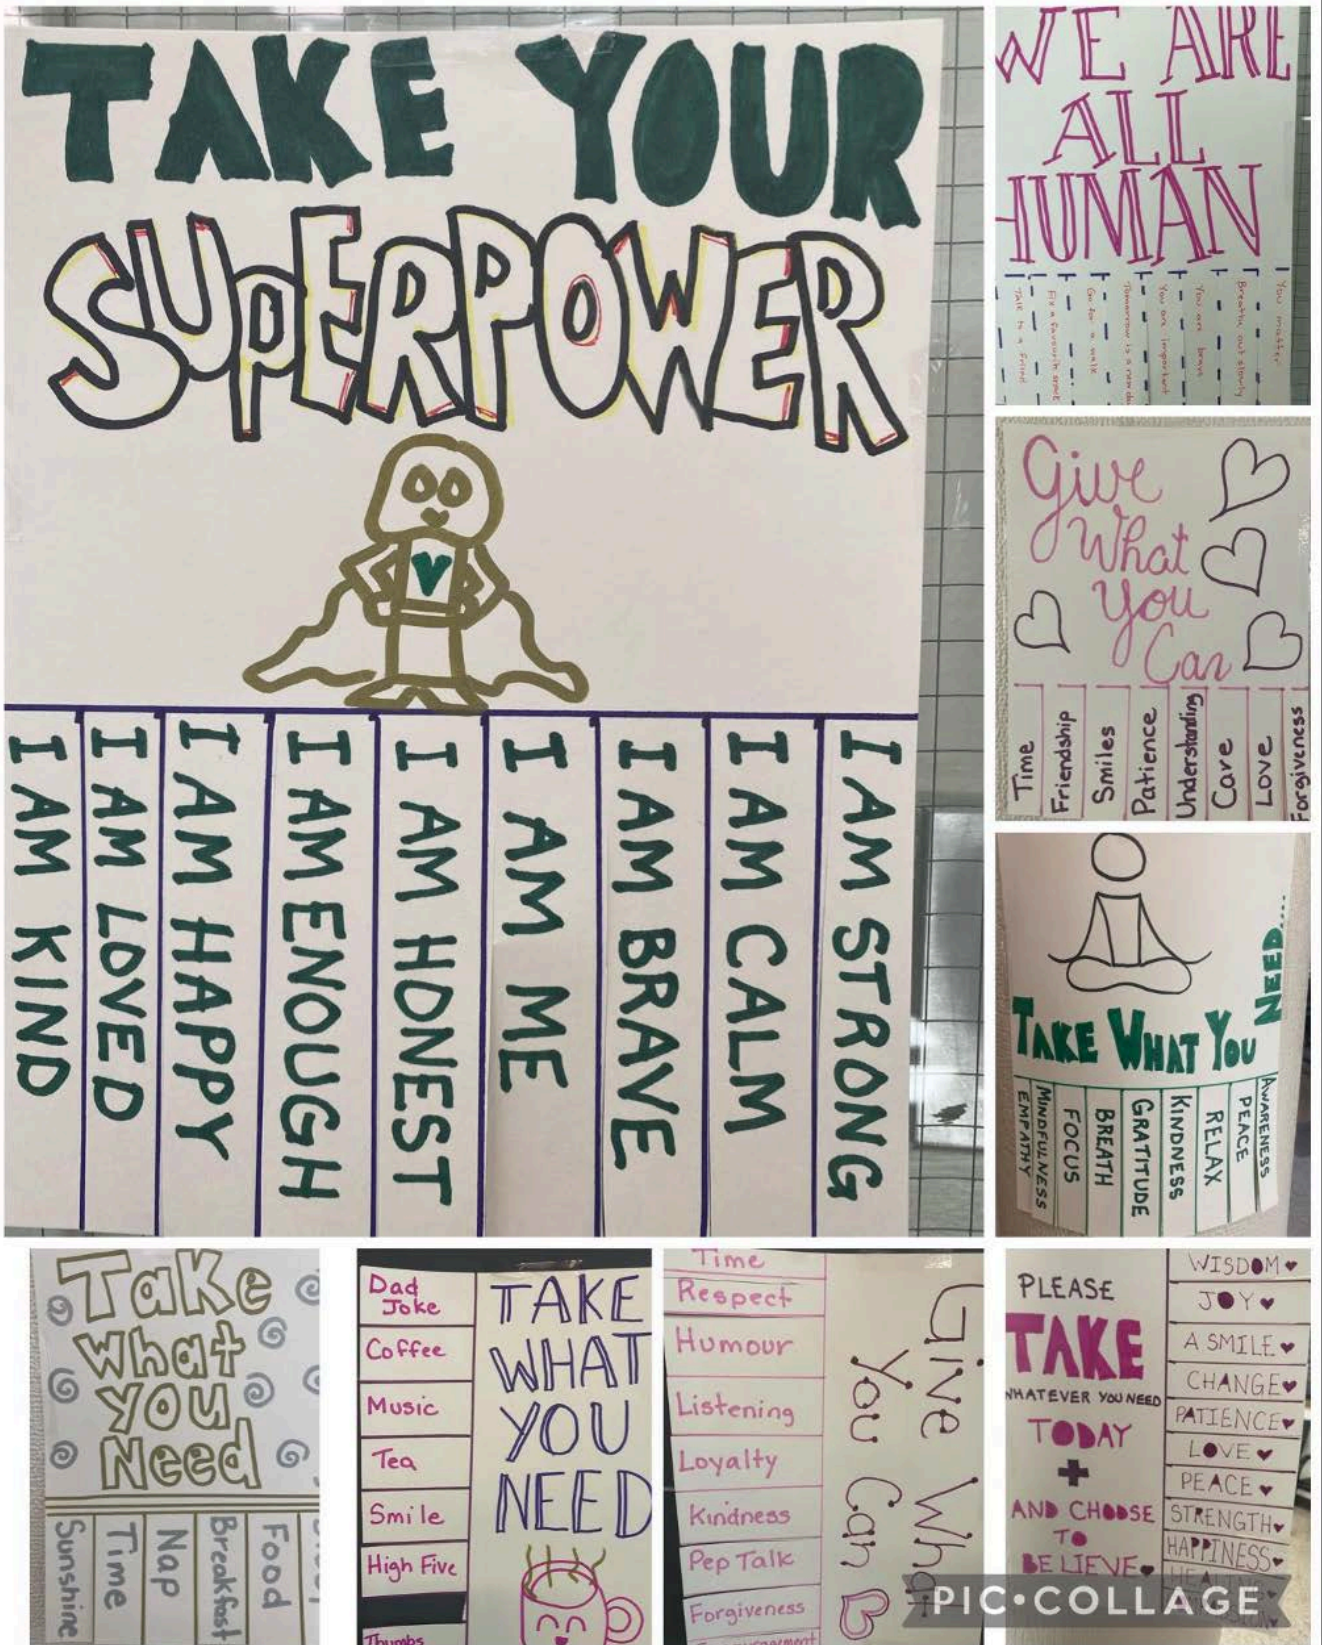 TAKE YOUR
SUPERPOWER
I AM KIND
I AM LOVED
I AM HAPPY
I AM ENOUGH
I AM HONEST
I AM ME
I AM BRAVE
I AM CALM
I AM STRONG
WE ARE
ALL
HUMAN
Talk to a friend
Go for a walk
Tomorrow is a new
You are important
You are brave
Breathe out slowly
You matter
Give
What
You
Can
Time
Friendship
Smiles
Patience
Understanding
Care
Love
Forgiveness
TAKE WHAT YOU NEED....
EMPATHY
MINDFULNESS
FOCUS
BREATH
GRATITUDE
KINDNESS
RELAX
PEACE
AWARENESS
Take
What
you
Need
Sunshine
Time
Nap
Breakfast
Food
TAKE
WHAT
YOU
NEED
Dad
Joke
Coffee
Music
Tea
Smile
High Five
Thumbs
Give What
You Can
Time
Respect
Humour
Listening
Loyalty
Kindness
Pep Talk
Forgiveness
PLEASE
TAKE
WHATEVER YOU NEED
TODAY
+
AND CHOOSE
TO
BELIEVE
WISDOM
JOY
A SMILE
CHANGE
PATIENCE
LOVE
PEACE
STRENGTH
HAPPINESS
HEALING
PIC•COLLAGE